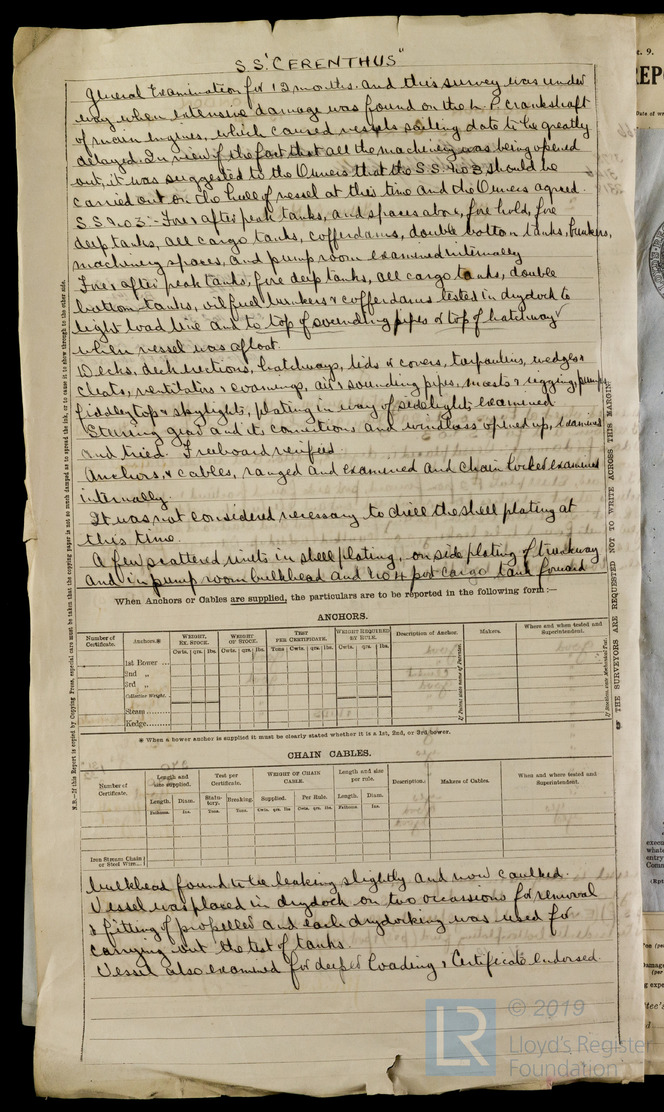 S.S. "CERENTHUS"
General Examination for 12 months. and this survey was under
way when extensive damage was found on the L.P. crankshaft
of main engines, which caused vessels sailing date to be greatly
delayed. In view of the fact that all the machinery was being opened
out, it was suggested to the Owners that the S.S. No 3 should be
carried out on the hull of vessel at this time and the Owners agreed.
S.S No 3:- Fore & after peak tanks, and spaces above, fore hold, fore
deep tanks, all cargo tanks, cofferdams, double bottom tanks, bunkers,
machinery spaces, and pump room examined internally
Fore & after peak tanks, fore deep tanks, all cargo tanks, double
bottom tanks, oil fuel bunkers & cofferdams tested in drydock to
light load line and to top of sounding pipes or top of hatchway
when vessel was afloat.
Decks, deck erections, hatchways, lids & covers, tarpaulins, wedges &
cleats, ventilators & coamings, air & sounding pipes, masts & rigging, pumps
fiddley tops & skylights, plating in way of sidelights examined
Steering gear and its connections and windlass opened up, examined
and tried. Freeboard verified.
Anchors & cables, ranged and examined and chain locker examined
internally.
It was not considered necessary to drill the shell plating at
this time.
A few scattered rivets in shell plating, on side plating of trunkway
and in pump room bulkhead and No 4 port cargo tank forward
When Anchors or Cables are supplied, the particulars are to be reported in the following form:—
ANCHORS.
Number of Certificate. Anchors.* WEIGHT, EX. STOCK. WEIGHT OF STOCK. TEST PER CERTIFICATE. WEIGHT REQUIRED BY RULE. Description of Anchor. Makers. Where and when tested and Superintendent.
Cwts. qrs. lbs. Cwts. qrs. lbs. Tons Cwts. qrs. lbs. Cwts. qrs. lbs.
1st Bower ...
2nd „
3rd „
Collective Weight.
Stream ........
Kedge ........
* When a bower anchor is supplied it must be clearly stated whether it is a 1st, 2nd, or 3rd bower.
CHAIN CABLES.
Number of Certificate. Length and size supplied. Test per Certificate. WEIGHT OF CHAIN CABLE. Length and size per rule. Description. Makers of Cables. When and where tested and Superintendent.
Length. Diam. Statutory. Breaking. Supplied. Per Rule. Length. Diam.
Fathoms. Ins. Tons. Tons. Cwts. qrs. lbs. Cwts. qrs. lbs. Fathoms. Ins.
Iron Stream Chain or Steel Wire...
bulkhead found to be leaking slightly and now caulked.
Vessel was placed in drydock on two occassions for removal
& fitting of propeller and each drydocking was used for
carrying out the test of tanks.
Vessel also examined for deeper loading & Certificate endorsed.
N.B.—If this Report is copied by Copying Press, especial care must be taken that the copying paper is not so much damped as to spread the ink, or to cause it to show through to the other side.
THE SURVEYORS ARE REQUESTED NOT TO WRITE ACROSS THIS MARGIN.
LR
© 2019
Lloyd's Register
Foundation